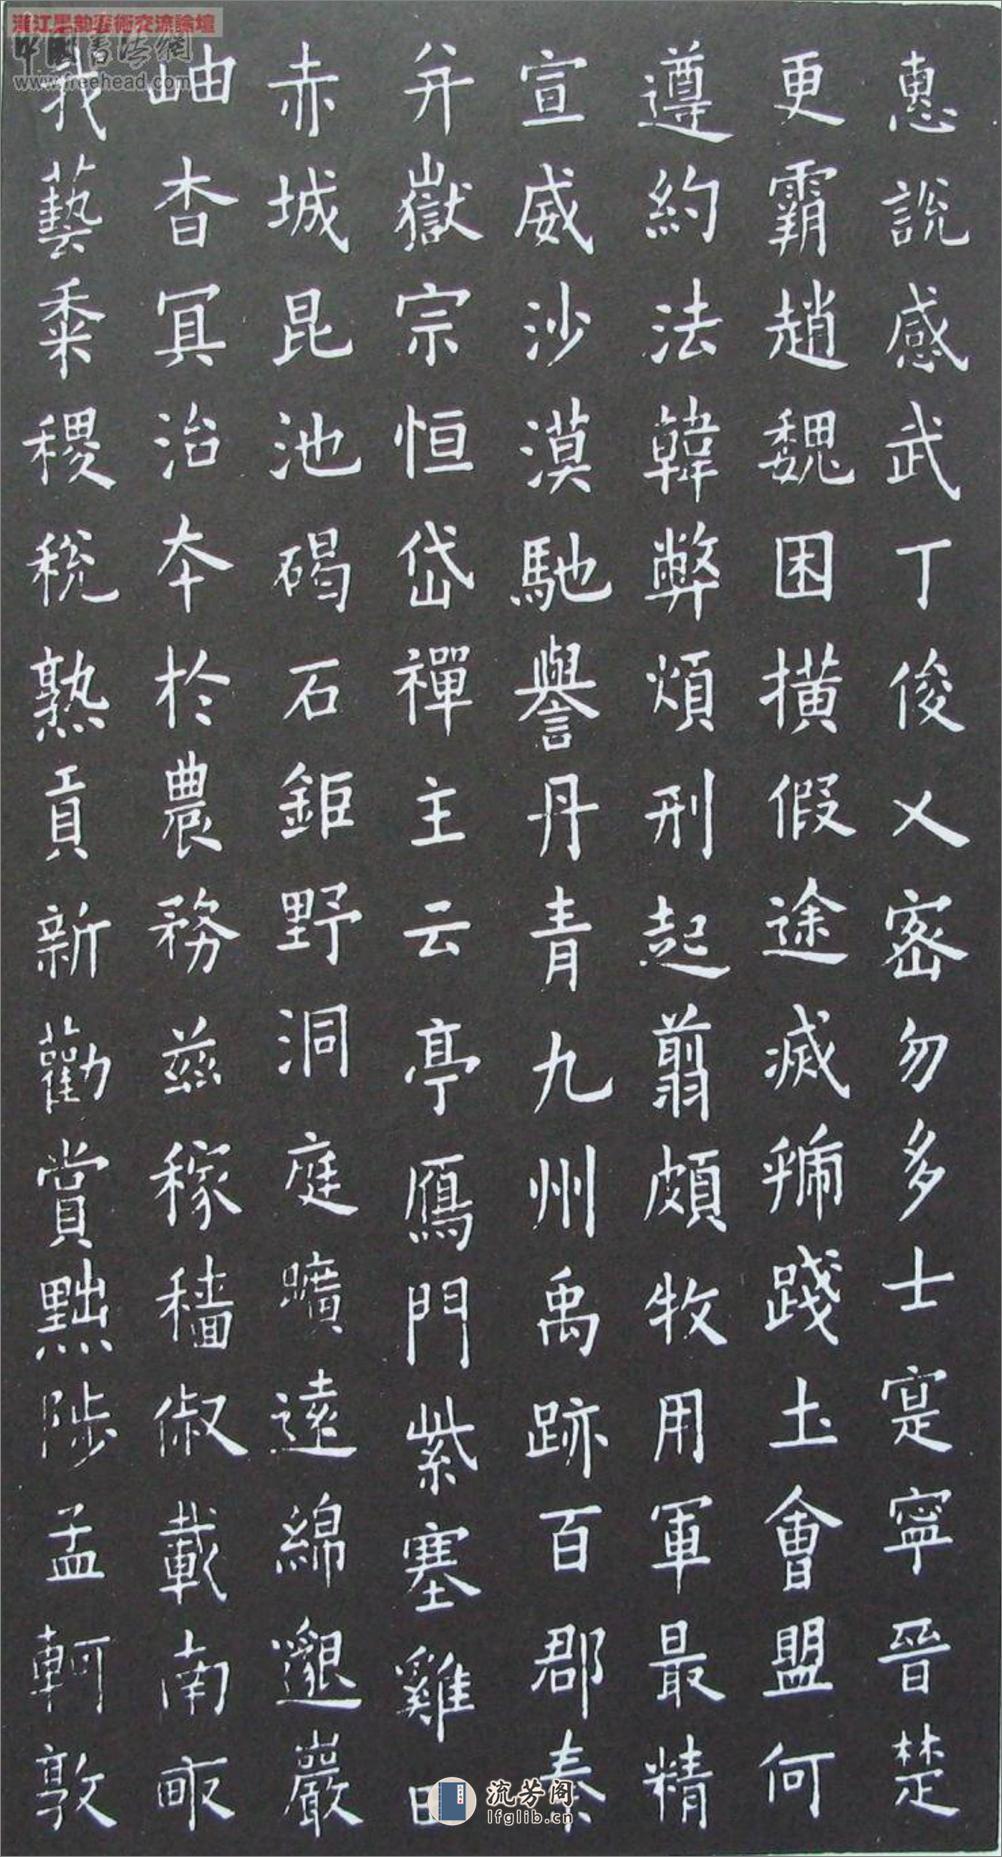 惠説感武丁俊乂密勿多士寔寧晉楚
更霸趙魏困橫假途滅虢踐土會盟何
遵約法韓弊煩刑起翦頗牧用軍最精
宣威沙漠馳譽丹青九州禹跡百郡秦
并嶽宗恒岱禪主云亭鴈門紫塞雞田
赤城昆池碣石鉅野洞庭曠遠綿邈巖
岫杳冥治本於農務茲稼穡俶載南畝
我藝黍稷稅熟貢新勸賞黜陟孟軻敦
漢江墨韵藝術交流論壇
中國書法網
www.freehead.com
流芳阁
lfglib.cn